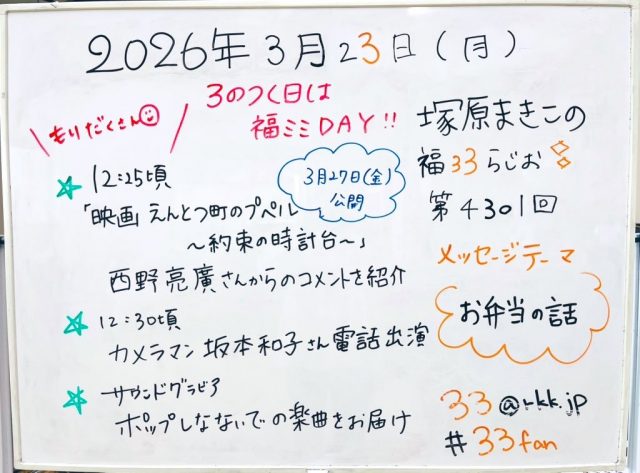 2026年3月23日(月)
\もりだくさん/
3のつく日は
福ミミDAY!!
12:25頃
「映画 えんとつ町のプペル
～約束の時計台～」
3月27日(金)
公開
西野亮廣さんからのコメントを紹介
12:30頃
カメラマン 坂本和子さん電話出演
サウンドグラビア
ポップしなないでの楽曲をお届け
塚原まきこの
福33らじお
第4301回
メッセージテーマ
お弁当の話
33@rkk.jp
#33fan